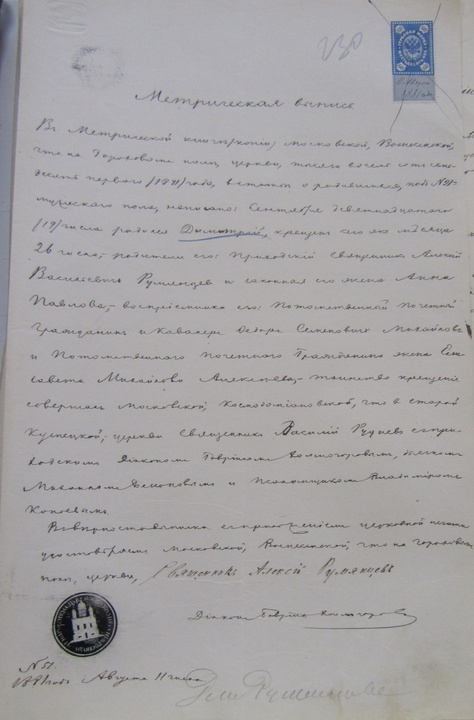 230
Метрическая выпись
Въ Метрической книгѣ/копіи/ Московской, Вознесенской,
что на Гороховомъ полѣ, церкви, тысяча восемь сотъ семь-
десятъ перваго /1871/ года, въ статьѣ о родившихся, подъ №
мужескаго пола, написано: Сентября девятнадцатаго
/19/ числа родился Димитрій, крещенъ сего же мѣсяца
26 числа, родители его: Приходскій Священникъ Алексій
Васильевичъ Румянцевъ и законная его жена Анна
Павлова, воспріемники его: Потомственный Почетный
Гражданинъ и Кавалеръ Ѳедоръ Семеновичъ Михайловъ
и Потомственнаго Почетнаго Гражданина жена Ели-
савета Михайлова Алексѣева, таинство крещенія
совершалъ Московской, Космодаміановской, что въ старой
Кузнецкой, церкви Священникъ Василій Рудневъ съ при-
ходскими Діакономъ Гавріиломъ, дьячкомъ
Михаиломъ и Псаломщикомъ Владиміромъ
Въ вѣрности съ приложеніемъ церковной печати
удостовѣряемъ Московской, Вознесенской, что на Гороховомъ
полѣ, церкви, Священникъ Алексій Румянцевъ
Діаконъ Гавріилъ
№ 51.
1881 года Августа 11 числа